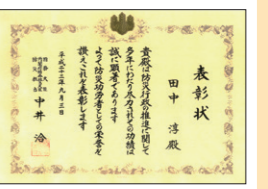 表彰状
田中 淳 殿
貴殿は防災行政の推進に関して
多年にわたり尽力されその功績は
誠に顕著であります
よって防災功労者としてその栄誉を
讃えこれを表彰します
平成二十二年九月三日
中井 洽